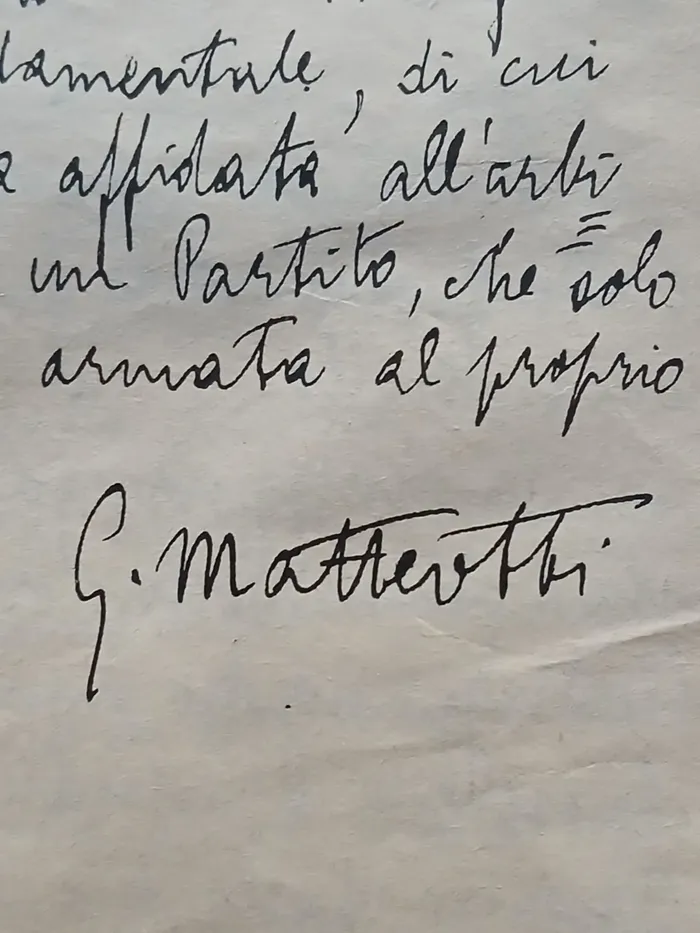 damentale, di cui
a affidata all'arbi=
un Partito, che solo
armata al proprio
G. Matteotti